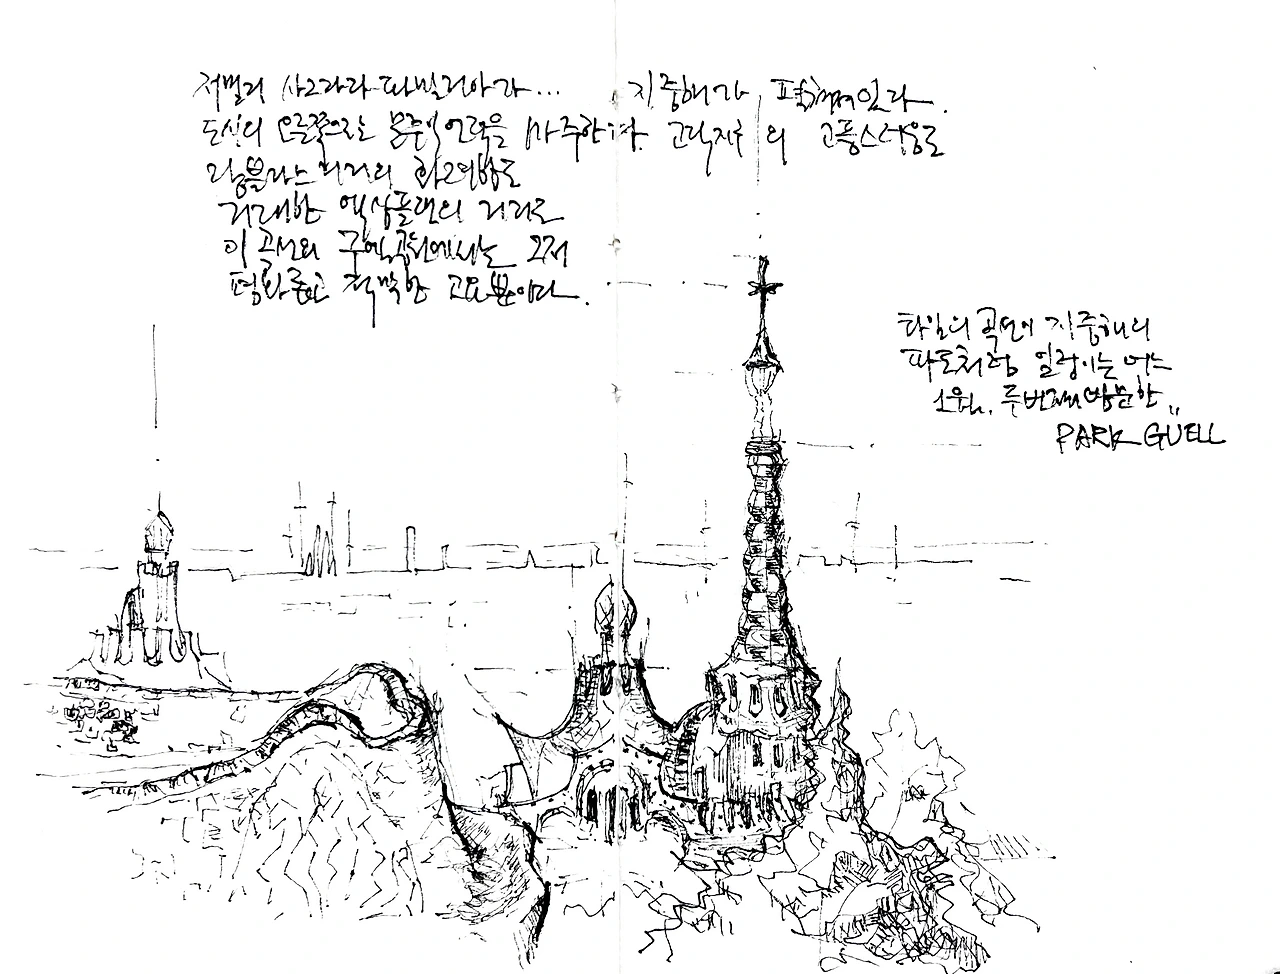 저멀리 사그라다 파밀리아가... 지중해가 펼쳐져있다.
도심의 오른쪽으로는 몬주익 언덕을 마주한다. 고딕지구의 고풍스러움도
람블라스거리의 화려함도
거대한 엑상플랜의 거리도
이 곡선의 구엘공원에서는 그저
평화롭고 적막한 고요뿐이다.
타일의 곡면이 지중해의
파도처럼 일렁이는 어느
오후, 두번째 방문한
PARK GÜELL